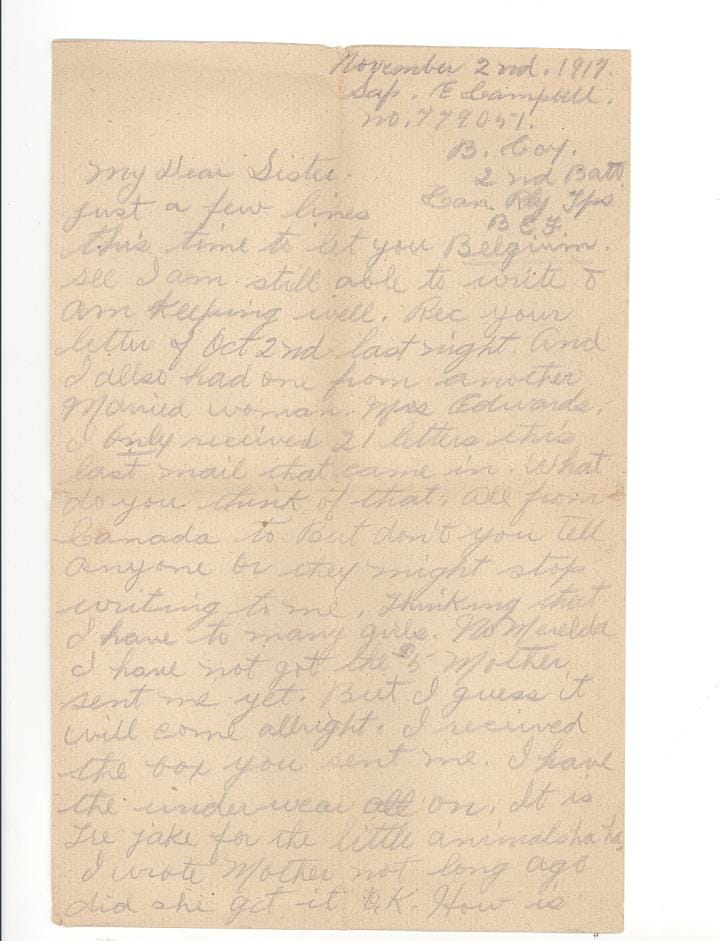 November 2nd. 1917.
Sap. E Campbell.
no. 779051.
B. Coy.
2nd Batt
Can. Rly Tps
B.E.F.
Belgium.
My Dear Sister.
just a few lines
this time to let you
see I am still able to write &
am keeping well. Rec your
letter of Oct 2nd last night. And
I allso had one from another
Maried woman. Mrs Edwards.
I only received 21 letters this
last mail that came in. What
do you think of that. All from
Canada to. But don't you tell
anyone or they might stop
writing to me. Thinking that
I have to many girls. No Merelda
I have not got the $5 Mother
sent me yet. But I guess it
will come allright. I received
the box you sent me. I have
the underwear on. It is
jake for the little animals ha ha,
I wrote Mother not long ago
did she get it O.K. How is